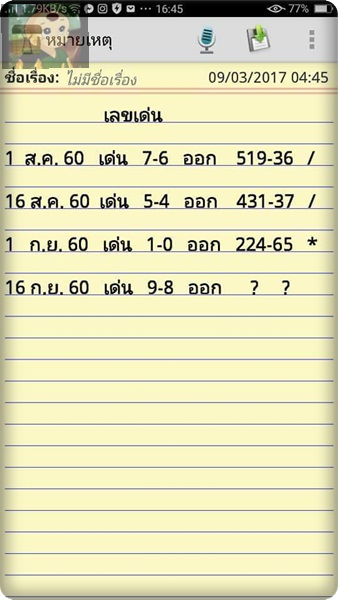 1.79KB/s ··· 16:45 77%
หมายเหตุ
ชื่อเรื่อง: ไม่มีชื่อเรื่อง 09/03/2017 04:45
เลขเด่น
1 ส.ค. 60 เด่น 7-6 ออก 519-36 /
16 ส.ค. 60 เด่น 5-4 ออก 431-37 /
1 ก.ย. 60 เด่น 1-0 ออก 224-65 *
16 ก.ย. 60 เด่น 9-8 ออก ? ?